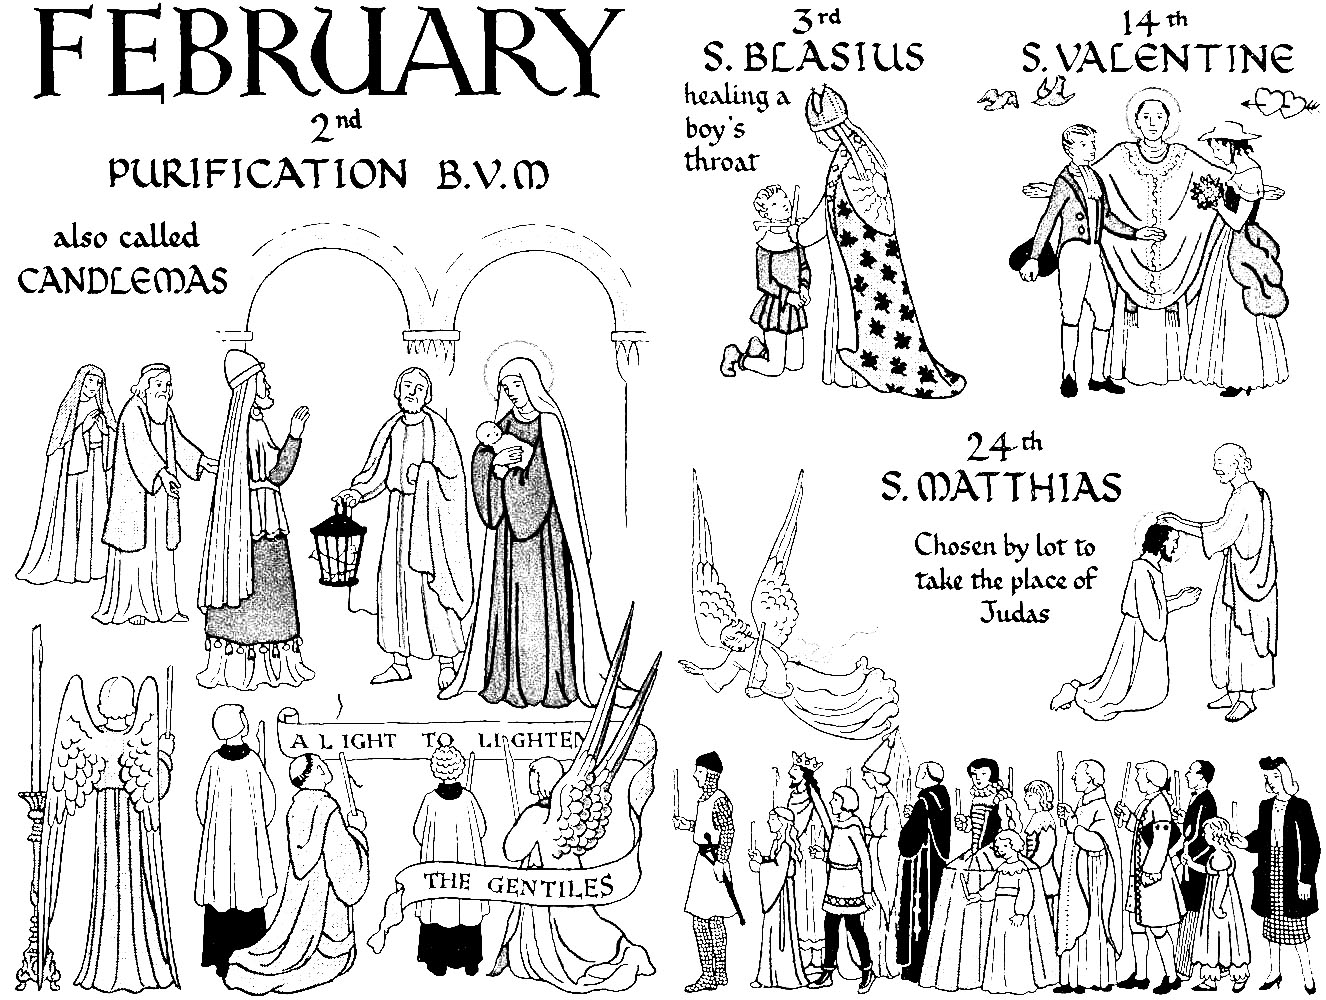 FEBRUARY
2nd
PURIFICATION B.V.M
also called
CANDLEMAS
A LIGHT TO LIGHTEN
THE GENTILES
3rd
S. BLASIUS
healing a
boy's
throat
14th
S. VALENTINE
24th
S. MATTHIAS
Chosen by lot to
take the place of
Judas